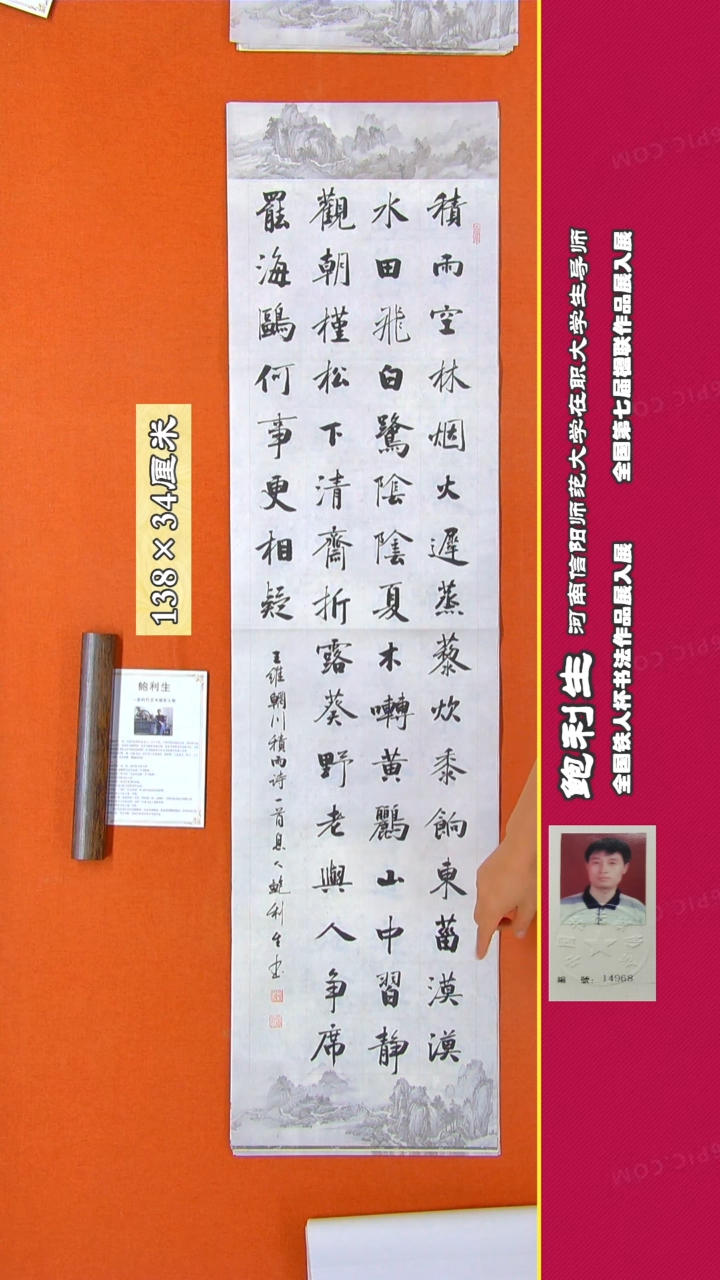 積雨空林烟火遲蒸藜炊黍餉東菑漠漠
水田飛白鷺陰陰夏木囀黃鸝山中習静
觀朝槿松下清齋折露葵野老與人争席
罷海鷗何事更相疑
王維輞川積雨诗一首息人鲍利生书
138×34厘米
鲍利生
鲍利生 河南信阳师范大学在职大学生导师
全国铁人杯书法作品展入展 全国第七届楹联作品展入展
14968